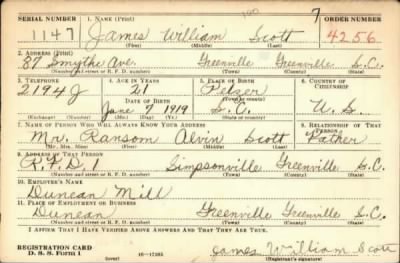 SERIAL NUMBER 1. NAME (Print) ORDER NUMBER
1147 James William Scott 4256
(First) (Middle) (Last)
2. ADDRESS (Print)
87 Smythe Ave. Greenville Greenville S.C.
(Number and street or R. F. D. number) (Town) (County) (State)
3. TELEPHONE 4. AGE IN YEARS 5. PLACE OF BIRTH 6. COUNTRY OF CITIZENSHIP
2194J 21 Pelzer
DATE OF BIRTH (Town or county)
June 9 1919 S.C. U.S.
(Exchange) (Number) (Mo.) (Day) (Yr.) (State or country)
7. NAME OF PERSON WHO WILL ALWAYS KNOW YOUR ADDRESS 8. RELATIONSHIP OF THAT PERSON
Mr. Ransom Alvin Scott Father
(Mr., Mrs., Miss) (First) (Middle) (Last)
9. ADDRESS OF THAT PERSON
R.F.D. 1 Simpsonville Greenville S.C.
(Number and street or R. F. D. number) (Town) (County) (State)
10. EMPLOYER'S NAME
Dunean Mill
11. PLACE OF EMPLOYMENT OR BUSINESS
Dunean Greenville Greenville S.C.
(Number and street or R. F. D. number) (Town) (County) (State)
I AFFIRM THAT I HAVE VERIFIED ABOVE ANSWERS AND THAT THEY ARE TRUE.
REGISTRATION CARD
D. S. S. Form 1 (over) 16-17105 James William Scott
(Registrant's signature)